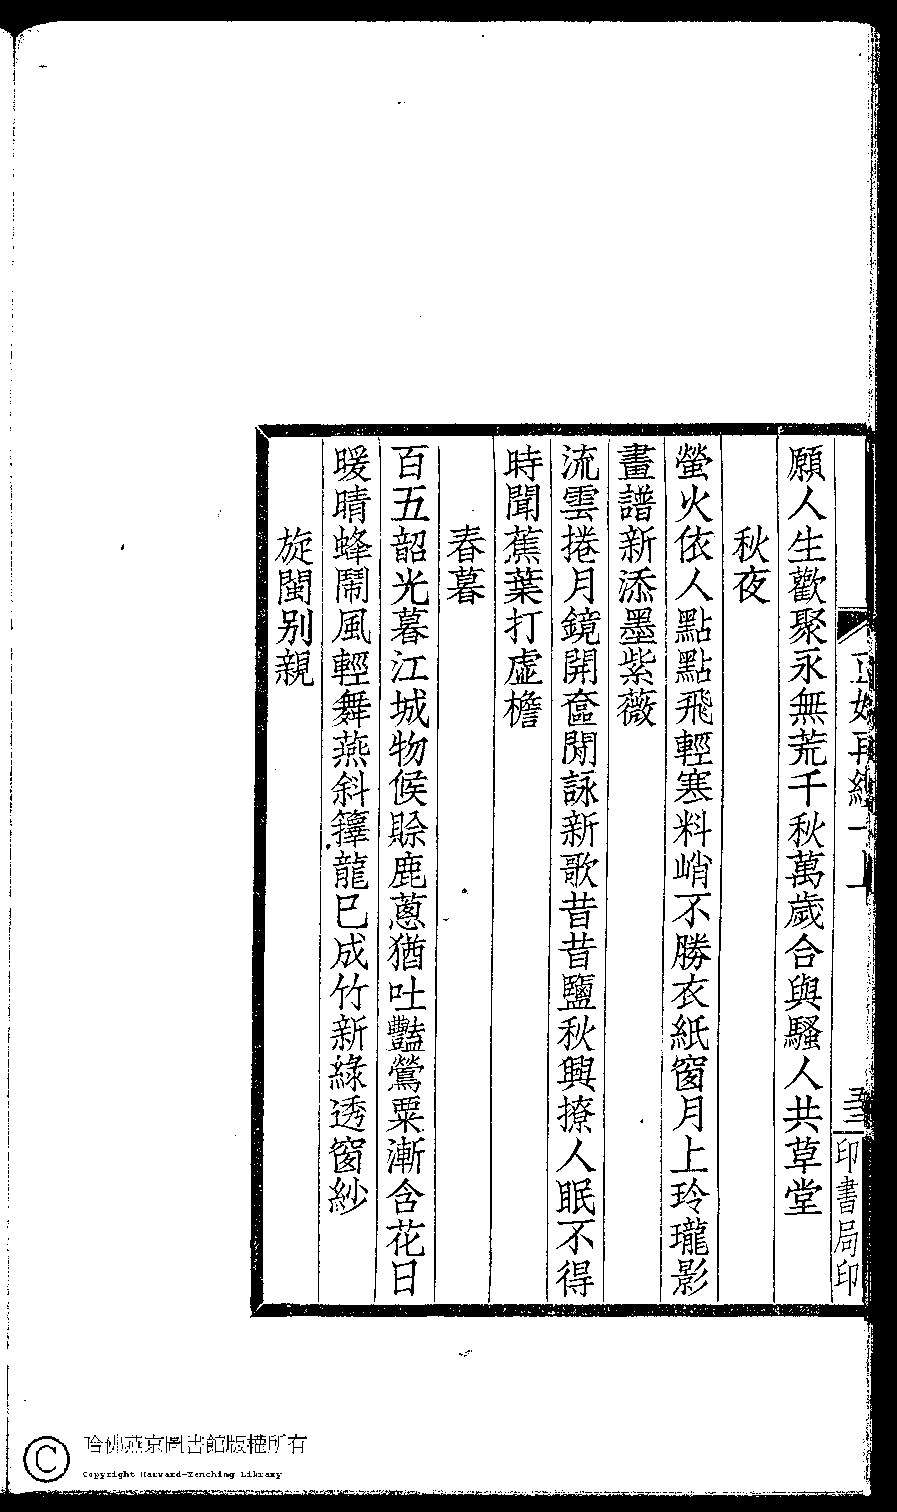 願人生歡聚永無荒千秋萬歲合與騷人共草堂
秋夜
螢火依人點點飛輕寒料峭不勝衣紙窗月上玲瓏影
畫譜新添墨紫薇
流雲捲月鏡開奩閒詠新歌昔昔鹽秋興撩人眠不得
時聞蕉葉打虛檐
春暮
百五韶光暮江城物候賒鹿蔥猶吐豔鶯粟漸含花日
暖晴蜂鬧風輕舞燕斜籜龍已成竹新綠透窗紗
旋閩别親
印書局印
哈佛燕京圖書館版權所有
Copyright Harvard-Yenching Library